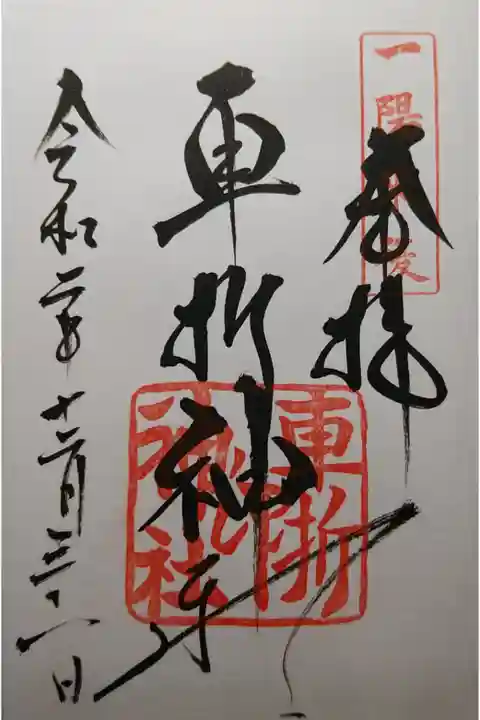 一陽来復
奉拝
車折神社
車折神社
令和二年十二月三十一日